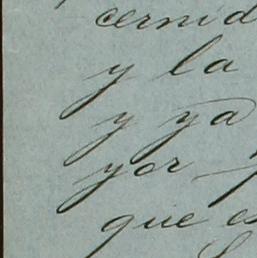 cernid
y la
y ya
yor
que es